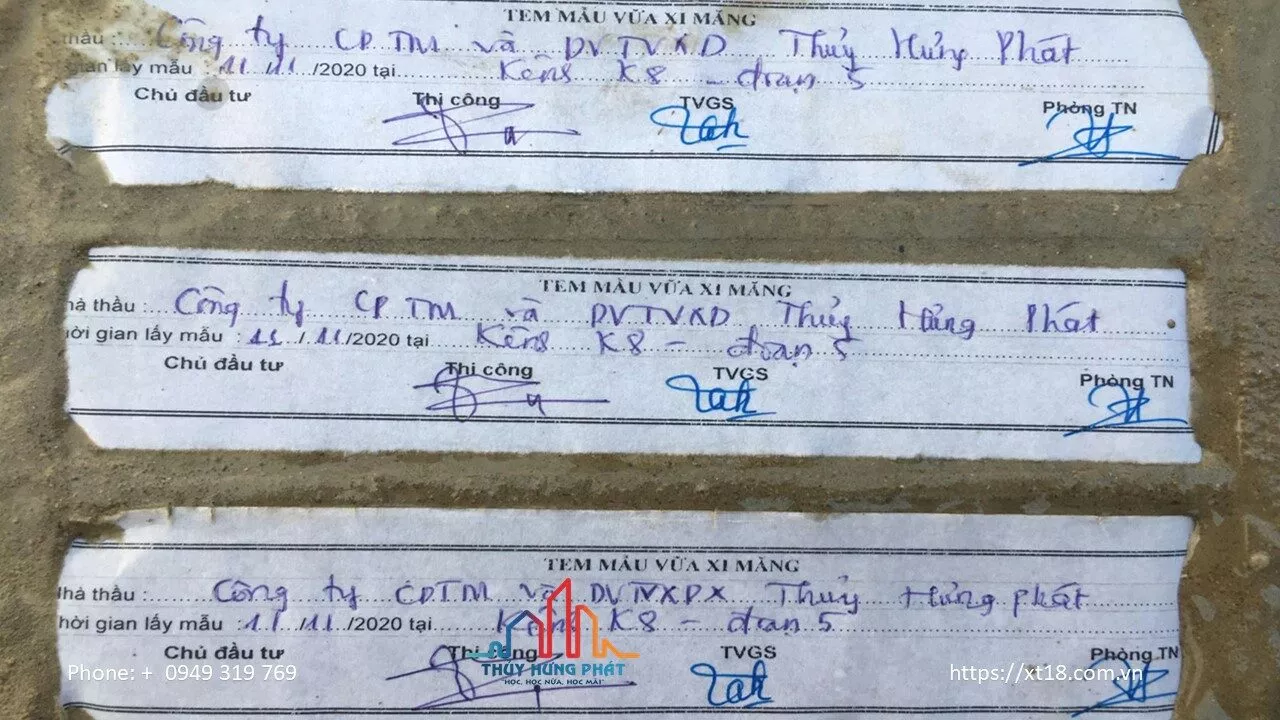 TEM MẪU VỮA XI MĂNG
thầu : Công ty CPTM và DVTVXD Thủy Hưng Phát
gian lấy mẫu : 11/11/2020 tại Kênh K8 - đoạn 5
Chủ đầu tư Thi công TVGS Phòng TN
TEM MẪU VỮA XI MĂNG
hà thầu : Công ty CPTM và DVTVXD Thủy Hưng Phát
hời gian lấy mẫu : 11/11/2020 tại Kênh K8 - đoạn 5
Chủ đầu tư Thi công TVGS Phòng TN
TEM MẪU VỮA XI MĂNG
Nhà thầu : Công ty CPTM và DVTVXD Thủy Hưng phát
hời gian lấy mẫu : 11/11/2020 tại Kênh K8 - đoạn 5
Chủ đầu tư Thi công TVGS Phòng TN
THỦY HƯNG PHÁT
"HỌC, HỌC NỮA, HỌC MÃI"
Phone: + 0949 319 769
https://xt18.com.vn/